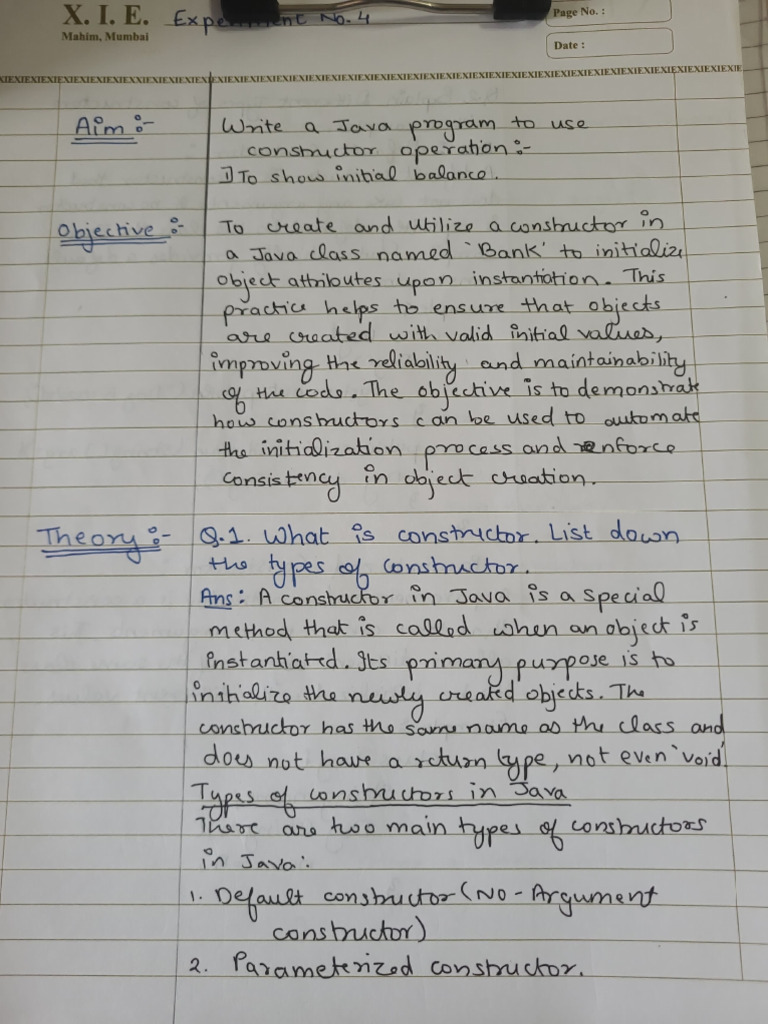 X. I. E. Experiment No. 4
Mahim, Mumbai
Page No. :
Date :
XIEXIEXIEXIEXIEXIEXIEXXIEXIEXIEXIEXIEXIEXIEXIEXIEXIEXIEXIEXIEXIEXIEXIEXIEXIEXIE
Aim :- Write a Java program to use
constructor operation :-
1] To show initial balance.
Objective :- To create and utilize a constructor in
a Java class named 'Bank' to initialize
object attributes upon instantiation. This
practice helps to ensure that objects
are created with valid initial values,
improving the reliability and maintainability
of the code. The objective is to demonstrate
how constructors can be used to automate
the initialization process and enforce
consistency in object creation.
Theory :- Q.1. What is constructor. List down
the types of constructor.
Ans: A constructor in Java is a special
method that is called when an object is
instantiated. Its primary purpose is to
initialize the newly created objects. The
constructor has the same name as the class and
does not have a return type, not even 'void'
Types of constructors in Java
There are two main types of constructors
in Java:
1. Default constructor (No-Argument
constructor)
2. Parameterized constructor.